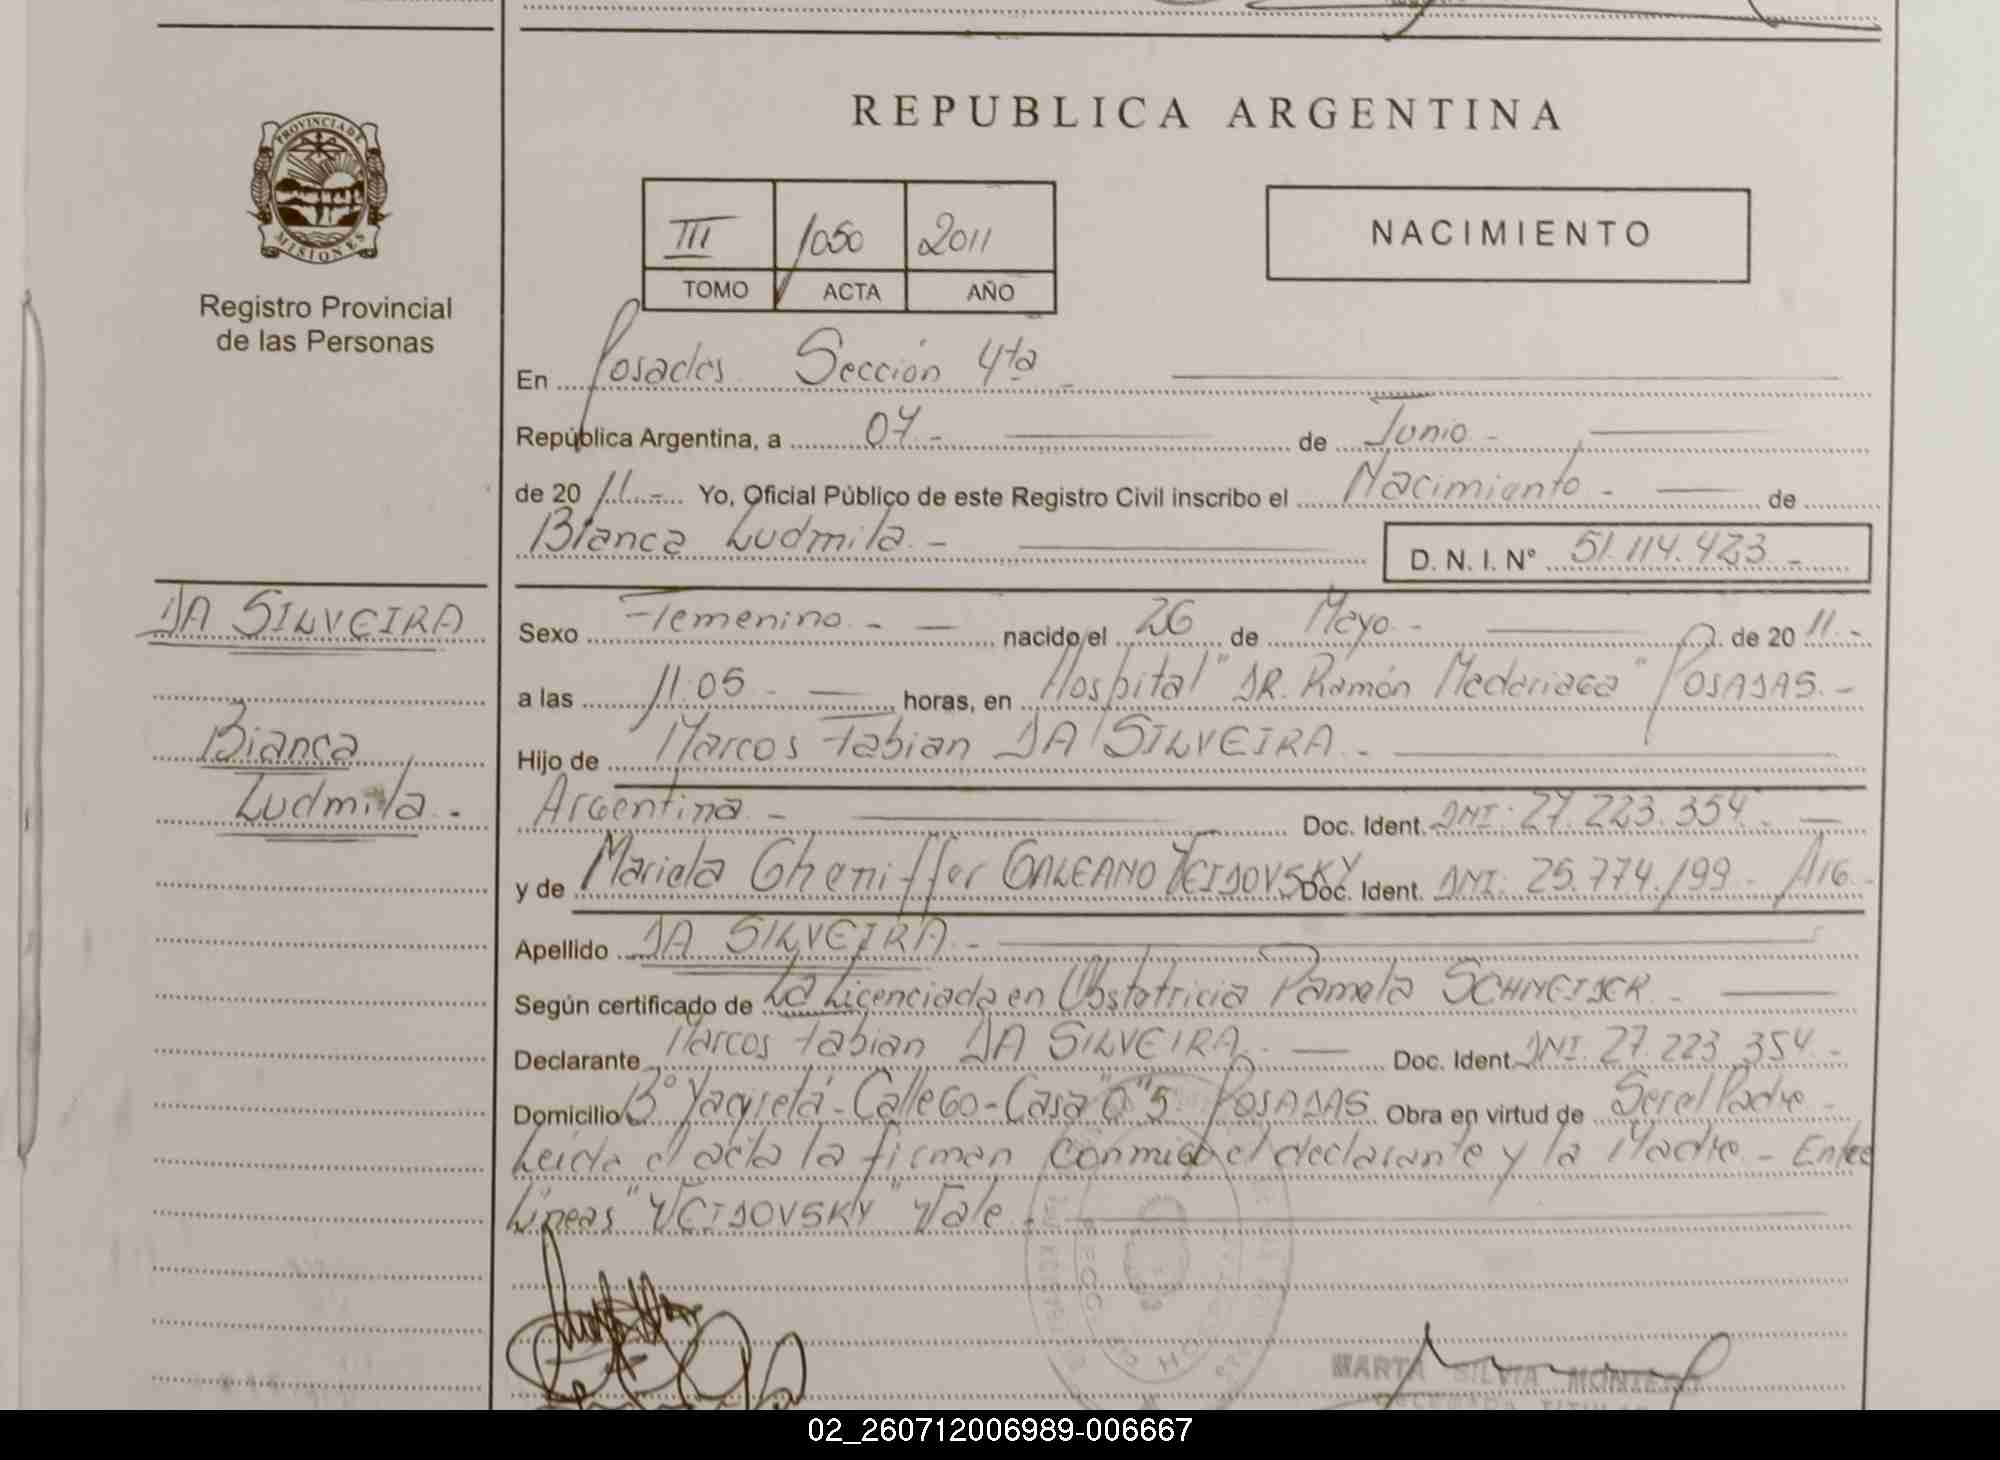 REPUBLICA ARGENTINA
PROVINCIA DE
MISIONES
Registro Provincial
de las Personas
III 1050 2011
TOMO ACTA AÑO
NACIMIENTO
En Posadas Sección 4ta -
República Argentina, a 07 - de Junio -
de 20 11 - Yo, Oficial Público de este Registro Civil inscribo el Nacimiento - de
Bianca Ludmila - D. N. I. Nº 51.114.423 -
DA SILVEIRA
Bianca
Ludmila -
Sexo Femenino - nacido el 26 de Mayo - de 20 11 -
a las 11:05 - horas, en Hospital "DR. Ramón Madariaga" POSADAS -
Hijo de Marcos Fabian DA SILVEIRA -
Argentina - Doc. Ident. DNI: 27.223.354 -
y de Mariela Gheniffer GALEANO VEIDOVSKY Doc. Ident. DNI: 25.774.199 - Arg. -
Apellido DA SILVEIRA -
Según certificado de La Licenciada en Obstetricia Pamela SCHNEIDER -
Declarante Marcos Fabian DA SILVEIRA - Doc. Ident. DNI: 27.223.354 -
Domicilio Bº Yacyretá - Calle 60 - Casa "0" 5 POSADAS Obra en virtud de Ser el Padre -
Leída el acta la firman conmigo el declarante y la Madre - Entre
Líneas "VEIDOVSKY" Vale -
MARTA SILVIA MONTERO
02_260712006989-006667